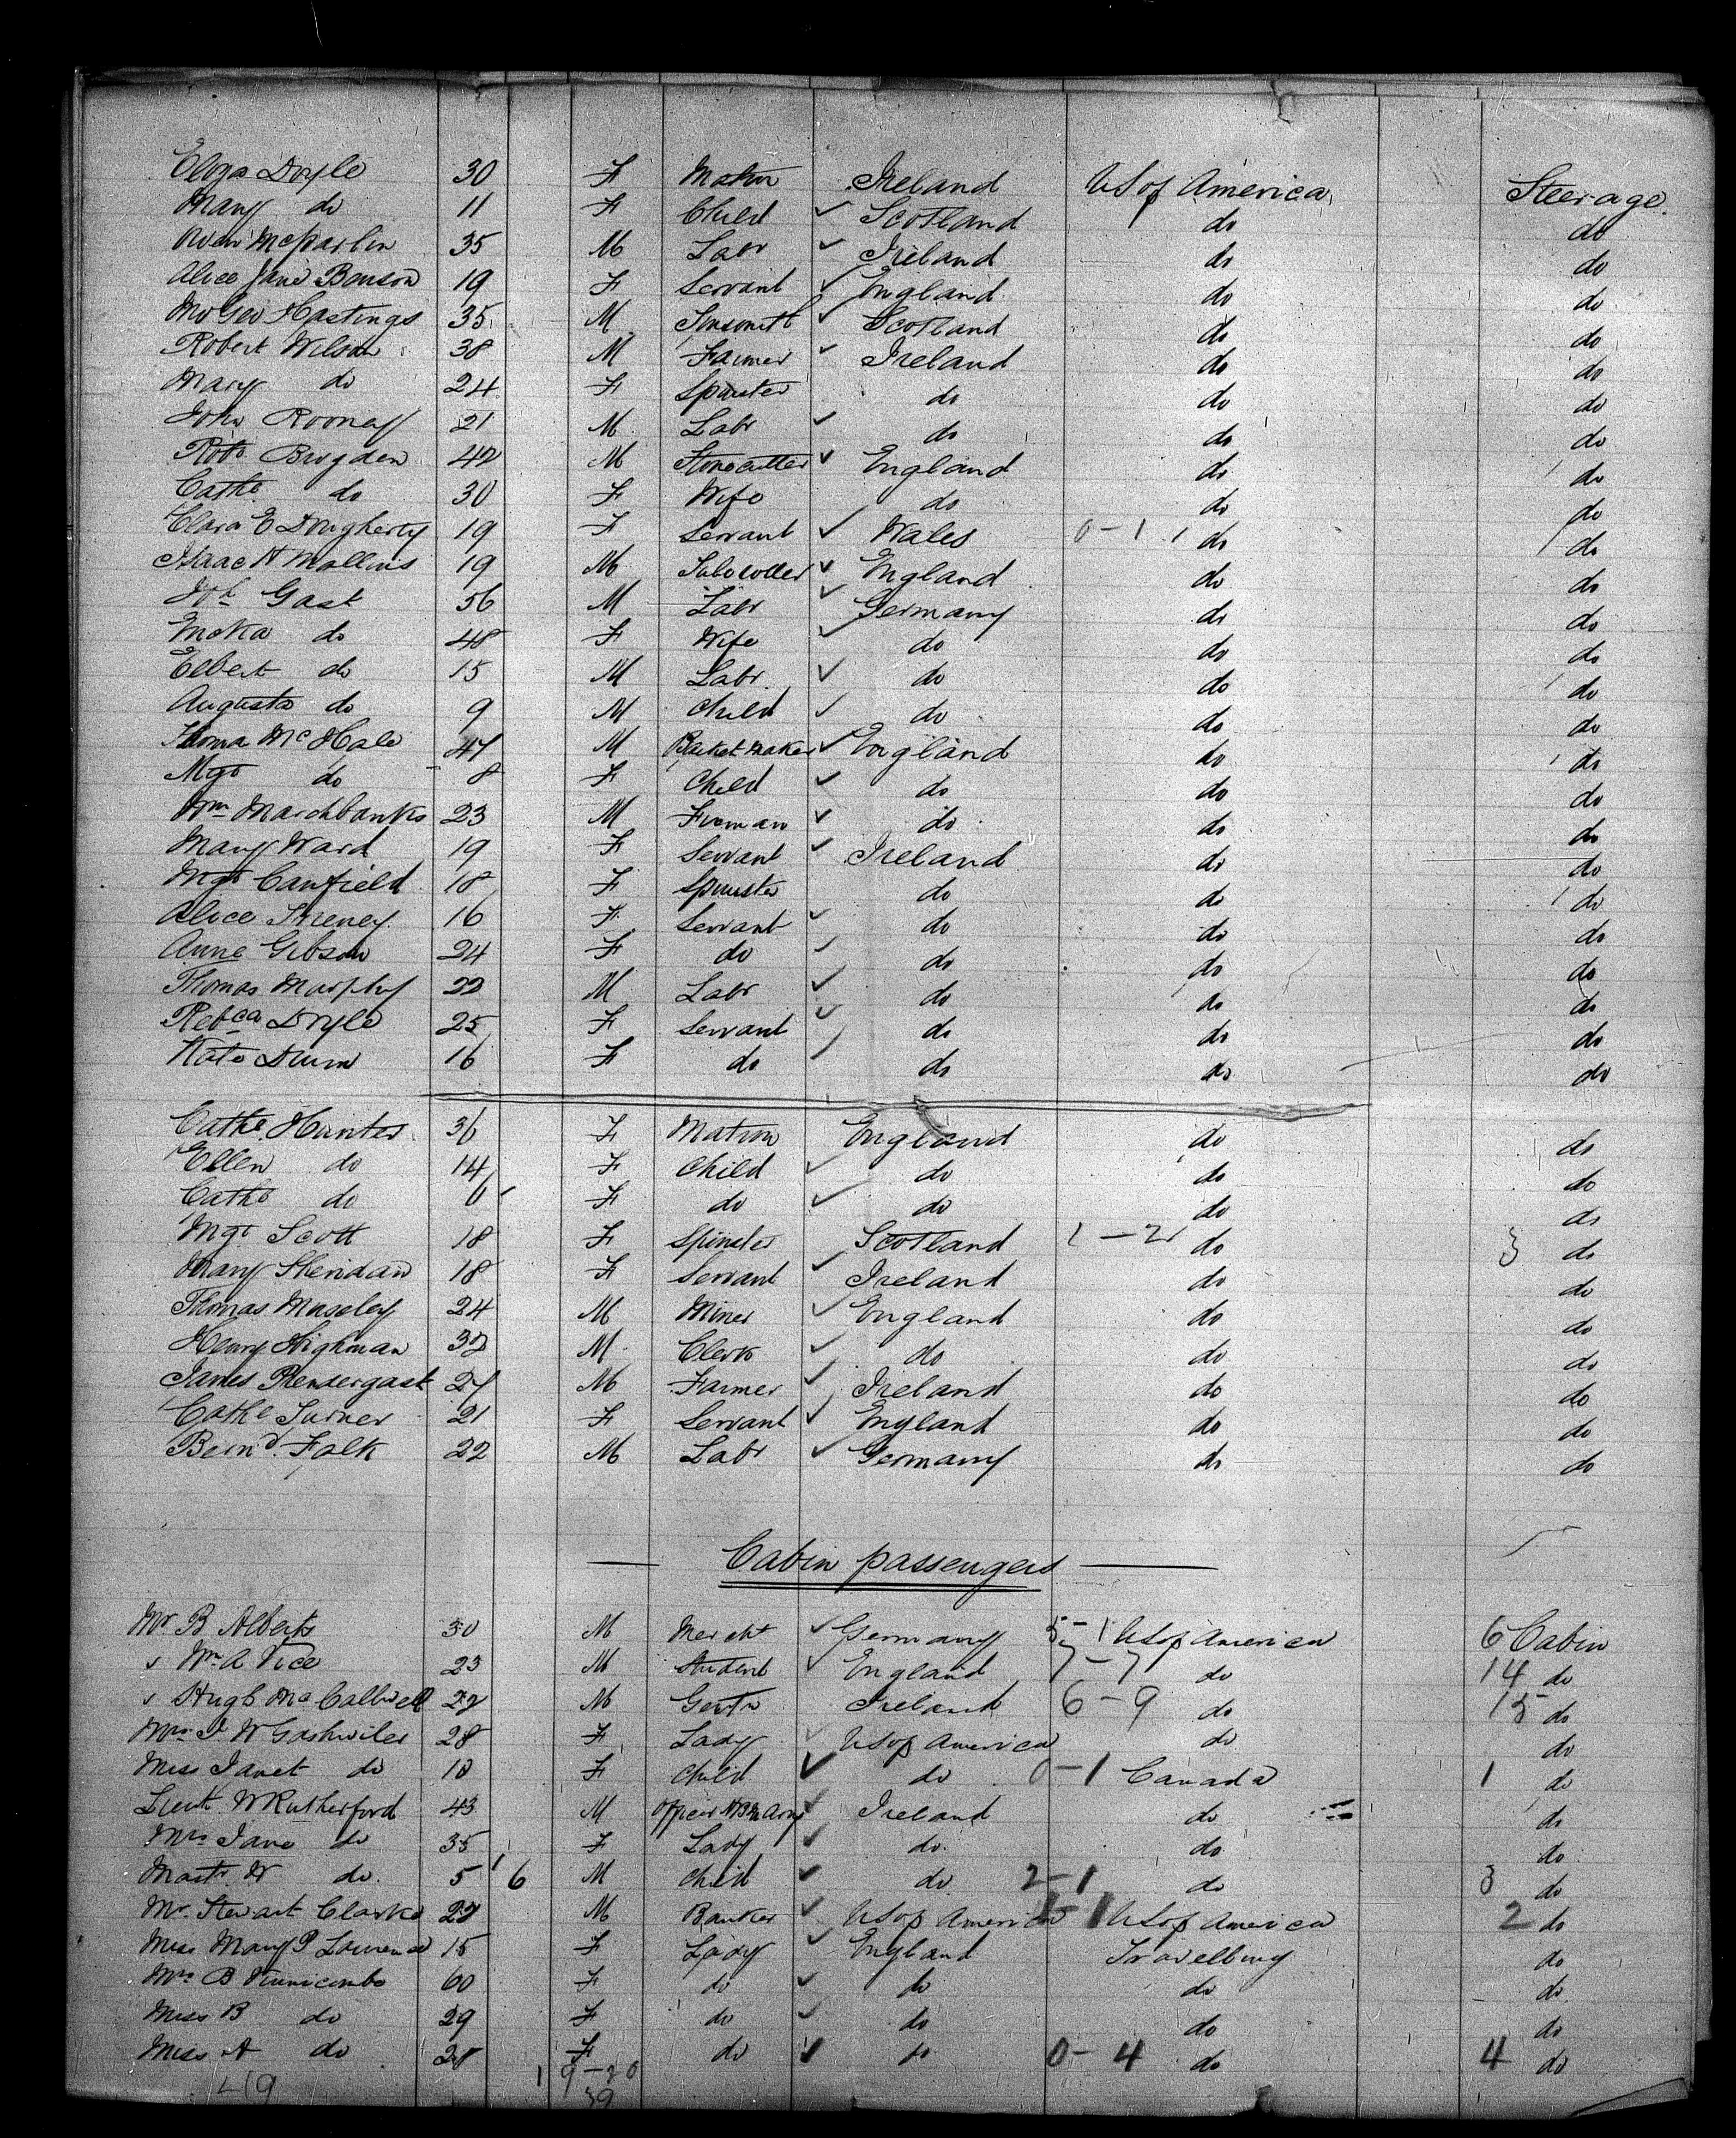 Eliza Doyle 30 F Matron Ireland US of America Steerage
Mary do 11 F Child Scotland do do
Owen McParlin 35 M Labr Ireland do do
Alice Jane Benson 19 F Servant England do do
Mr Geo Hastings 35 M Tinsmith Scotland do do
Robert Wilson 38 M Farmer Ireland do do
Mary do 24 F Spinster do do do
John Rooney 21 M Labr do do do
Robt Brogden 42 M Stonecutter England do do
Cathe do 30 F Wife do do do
Clara E Dougherty 19 F Servant Wales 0-1 do do
Isaac H Mollins 19 M England do do
Joh Gast 56 M Labr Germany do do
do 48 F Wife do do do
Elbert do 15 M Labr do do do
Augusta do 9 M Child do do do
Thoma McHale 47 M Packet Maker England do do
Mgt do 8 F Child do do do
Wm Marchbanks 23 M Fireman do do do
Mary Ward 19 F Servant Ireland do do
Mgt Canfield 18 F Spinster do do do
Alice 16 F Servant do do do
Anne Gibson 24 F do do do do
Thomas Murphy 22 M Labr do do do
Rebca Doyle 25 F Servant do do do
Kate Drum 16 F do do do do
Cathe Hunter 36 F Matron England do do
Ellen do 14 F Child do do do
Cathe do 6 F do do do do
Mgt Scott 18 F Spinster Scotland 1-2 do 3 do
Mary Sheridan 18 F Servant Ireland do do
Thomas Museley 24 M Miner England do do
Henry Highman 32 M Clerk do do do
James Prendergast 27 M Farmer Ireland do do
Cathe Turner 21 F Servant England do do
Bernd. Falk 22 M Labr Germany do do
Cabin passengers
Mr B Alberts 30 M Mercht Germany 5-1 US of America 6 Cabin
" Wm A Vice 23 M Student England 7-7 do 14 do
" Hugh McCallwell 22 M Gentn Ireland 6-9 do 15 do
Mrs J W Gashwiler 28 F Lady US of America do do
Miss Janet do 10 F Child do 0-1 Canada 1 do
Lieut W Rutherford 43 M Officer HBM Army Ireland do do
Mrs Jane do 35 F Lady do do do
Mastr W do 5 6 M Child do 2-1 do 3 do
Mr Stewart Clarke 22 M Banker US of America 1-1 US of America 2 do
Miss Mary P Lawrence 15 F Lady England Travelling do
Mrs B Vinnicombe 60 F do do do do
Miss B do 29 F do do do do
Miss A do 28 F do do 0-4 do 4 do
1 9-20
49 39